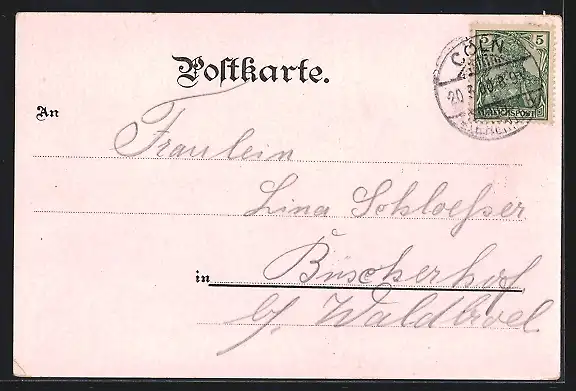 Postkarte.
An
Fraulein
Lina Schloesser
in Büscherhof
bʒ Waldbroel
CÖLN
5
REICHSPOST